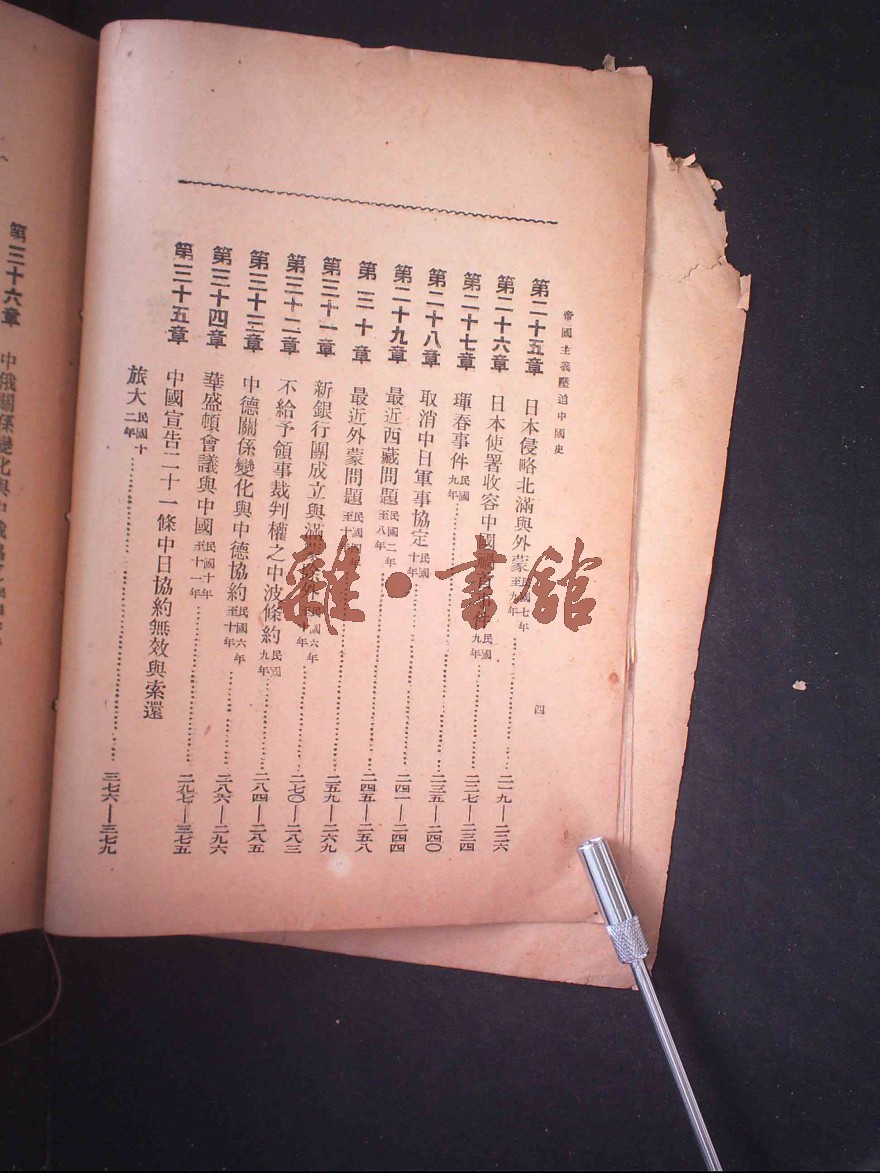 帝國主義壓迫中國史 四
第二十五章 日本侵略北滿與外蒙 民國七年至九年……二一九—二二六
第二十六章 日本使署收容中國事件 民國九年……二二七—二三四
第二十七章 琿春事件 民國九年……二三五—二四〇
第二十八章 取消中日軍事協定 民國十年……二四一—二四四
第二十九章 最近西藏問題 民國二年至八年……二四五—二五八
第三十章 最近外蒙問題 民國四年至十年……二五九—二六九
第三十一章 新銀行團成立與滿蒙除外 民國六年至十年……二七〇—二八三
第三十二章 不給予領事裁判權之中波條約 民國九年……二八四—二八五
第三十三章 中德關係變化與中德協約 民國六年至十年……二八六—二九六
第三十四章 華盛頓會議與中國 民國十年至十一年……二九七—三七五
第三十五章 中國宣告二十一條中日協約無效與索還
旅大 民國十二年……三七六—三七九
第三十六章 中俄關係變化與中俄
雜·書館